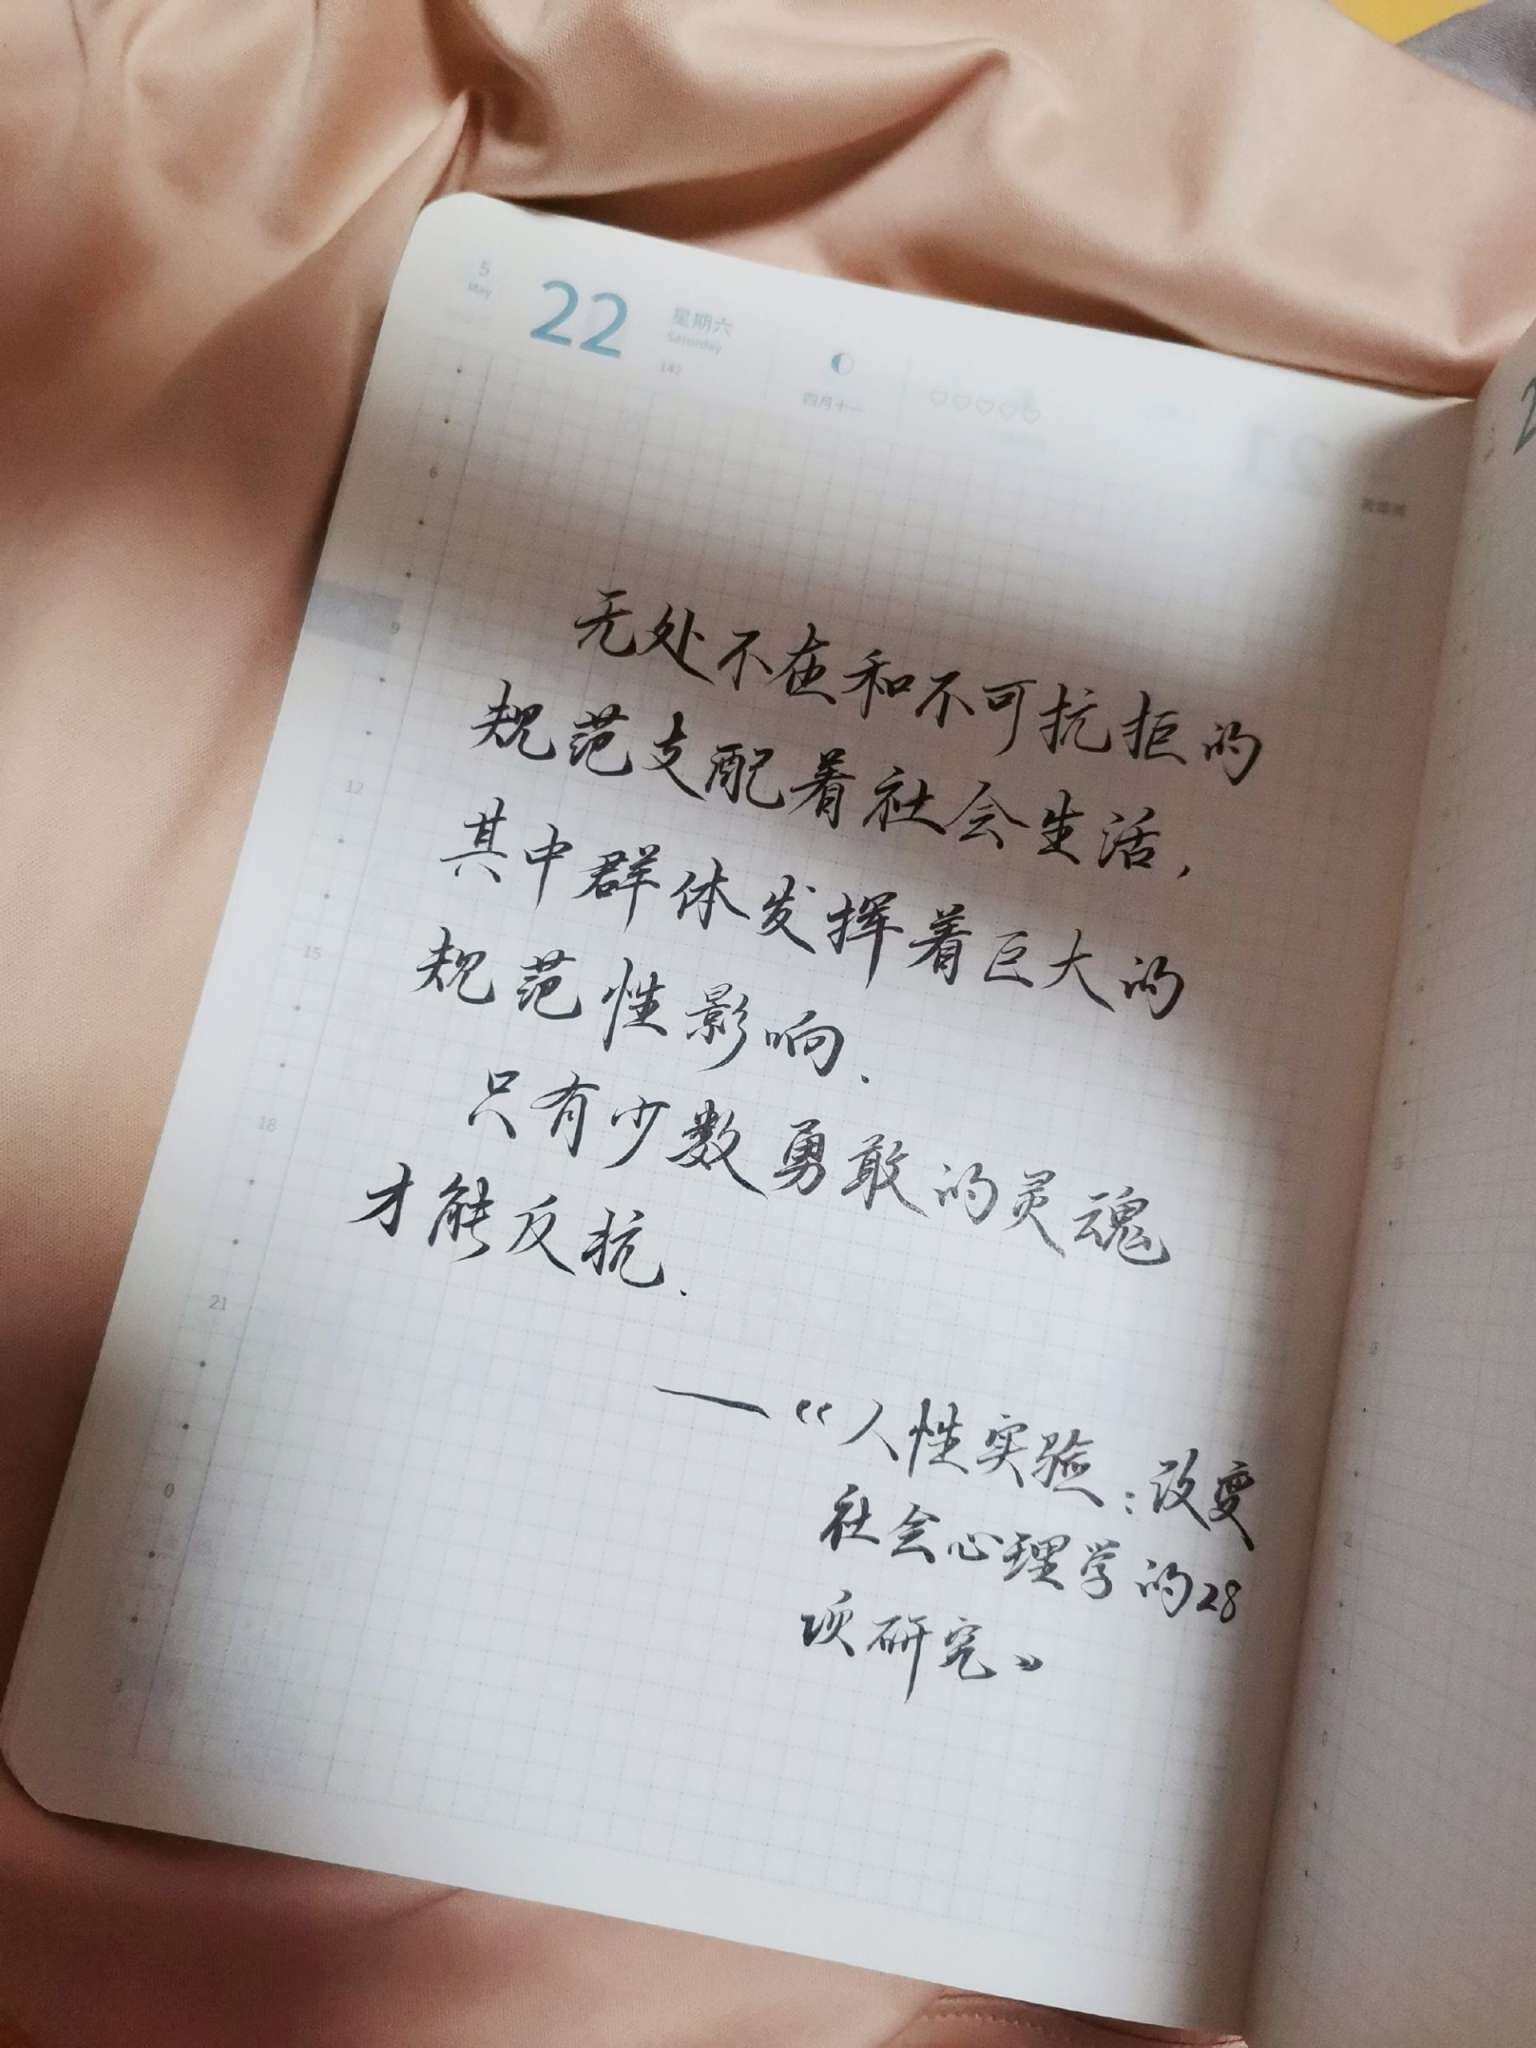 5
May
22
星期六
Saturday
142
四月十一
6
9
12
15
18
21
0
3
无处不在和不可抗拒的
规范支配着社会生活,
其中群体发挥着巨大的
规范性影响.
只有少数勇敢的灵魂
才能反抗.
——《人性实验:改变
社会心理学的28
项研究》